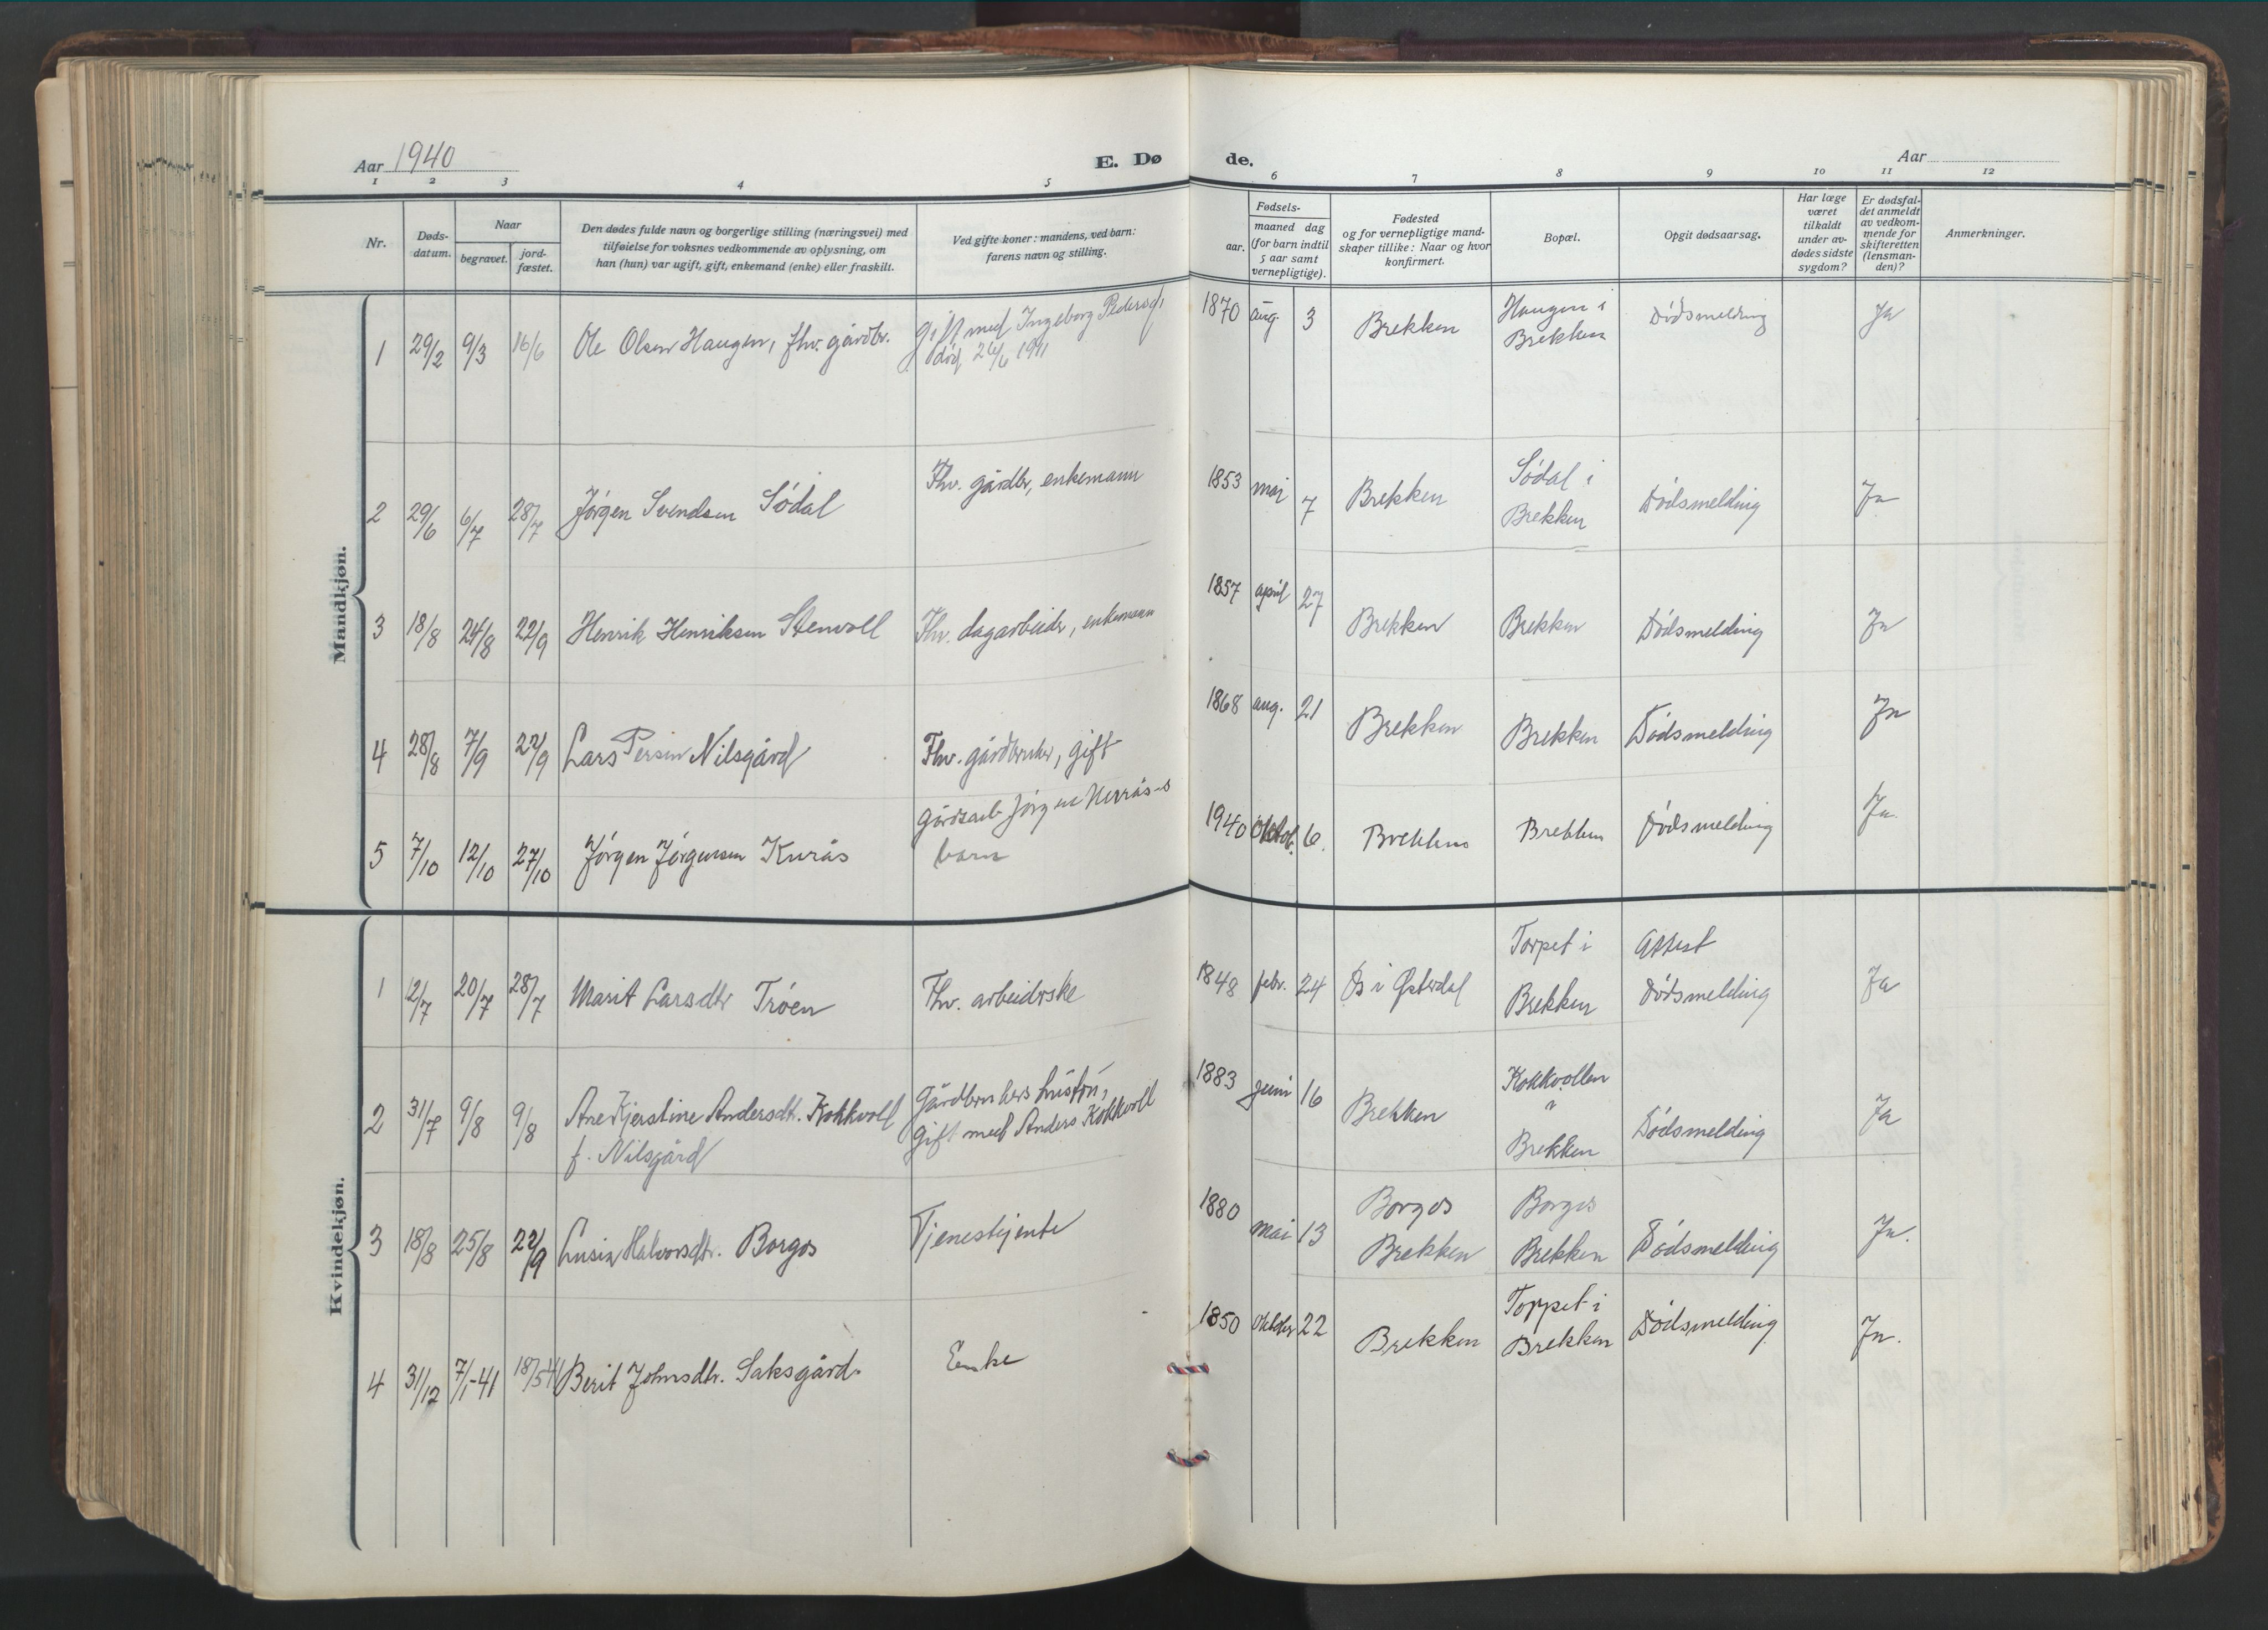 Aar 1940
E. Dø de.
Aar
1 2 3 4 5 6 7 8 9 10 11 12
Nr.
Døds-
datum.
Naar
begravet.
jord-
fæstet.
Den dødes fulde navn og borgerlige stilling (næringsvei) med
tilføielse for voksnes vedkommende av oplysning, om
han (hun) var ugift, gift, enkemand (enke) eller fraskilt.
Ved gifte koner: mandens, ved barn:
farens navn og stilling.
Fødsels-
aar.
maaned dag
(for barn indtil
5 aar samt
vernepligtige).
Fødested
og for vernepligtige mand-
skaper tillike: Naar og hvor
konfirmert.
Bopæl.
Opgit dødsaarsag.
Har læge
været
tilkaldt
under av-
dødes sidste
sygdom?
Er dødsfal-
det anmeldt
av vedkom-
mende for
skifteretten
(lensman-
den)?
Anmerkninger.
Mandkjøn.
1 29/2 9/3 16/6 Ole Olsen Haugen, fhv. gårdbr.
Gift med Ingeborg Pedersd,
død 26/6 1911
1870 aug. 3 Brekken
Haugen i
Brekken
Dødsmelding Ja
2 29/6 6/7 28/7 Jørgen Svendsen Sødal
Fhv. gårdbr, enkemann
1853 mai 7 Brekken
Sødal i
Brekken
Dødsmelding Ja
3 18/8 24/8 22/9 Henrik Henriksen Stenvoll
Fhv. dagarbeider, enkemann
1857 april 27 Brekken Brekken Dødsmelding Ja
4 28/8 7/9 22/9 Lars Persen Nilsgård
Fhv. gårdbruker, gift
1868 aug. 21 Brekken Brekken Dødsmelding Ja
5 7/10 12/10 27/10 Jørgen Jørgensen Kurås
Gårdsarb Jørgen Kurås-s
barn
1940 Oktob. 6. Brekken Brekken Dødsmelding Ja.
Kvindekjøn.
1 12/7 20/7 28/7 Marit Larsdtr Trøen
Fhv. arbeiderske
1848 febr. 24 Os i Østerdal
Torpet i
Brekken
Attest
Dødsmelding
Ja
2 31/7 9/8 9/8 Ane Kjerstine Andersdt. Kokkvoll
f. Nilsgård
Gårdbrukers hustru,
gift med Anders Kokkvoll
1883 juni 16 Brekken
Kokkvollen
i
Brekken
Dødsmelding Ja
3 18/8 25/8 22/9 Lusia Halvorsdtr. Borgos
Tjenestejente
1880 mai 13
Borgos
Brekken
Borgos
Brekken
Dødsmelding Ja.
4 31/12 7/1-41 18/5 41 Berit Johnsdtr. Saksgård.
Enke
1850 oktober 22 Brekken
Torpet i
Brekken
Dødsmelding Ja.